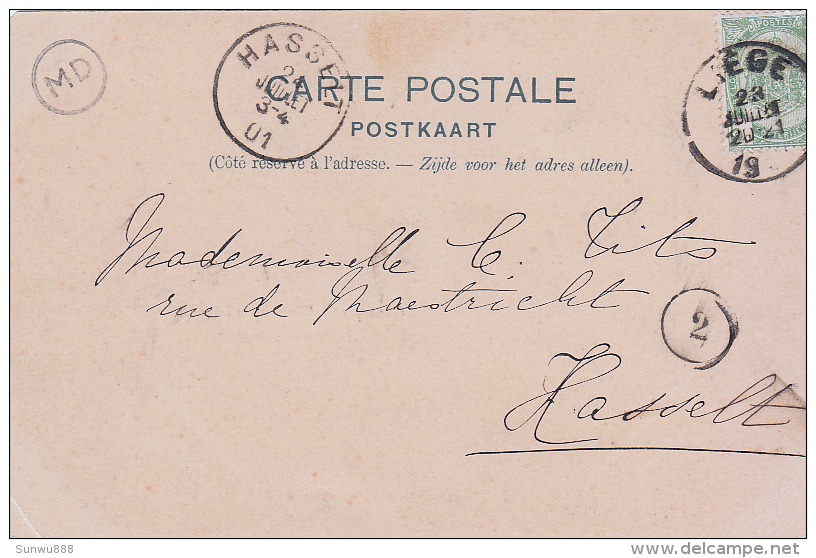 MD
HASSELT
24
JUILLET
3-4
01
POSTES
LIEGE
23
JUILLET
20-21
19
CARTE POSTALE
POSTKAART
(Côté réservé à l'adresse. — Zijde voor het adres alleen).
Mademoiselle C. Tits
rue de Maestricht
2
Hasselt
Sunwu888
delcampe.net